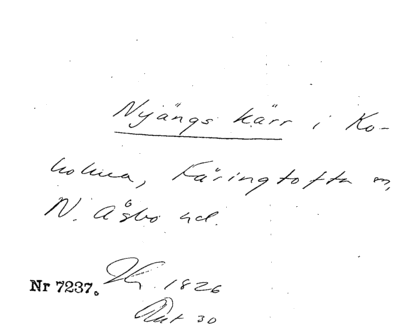 Nyängs kärr i Ko-
holma, Färingtofta sn,
N. Åsbo hd.
Nr 7237. 1826
Rut 30